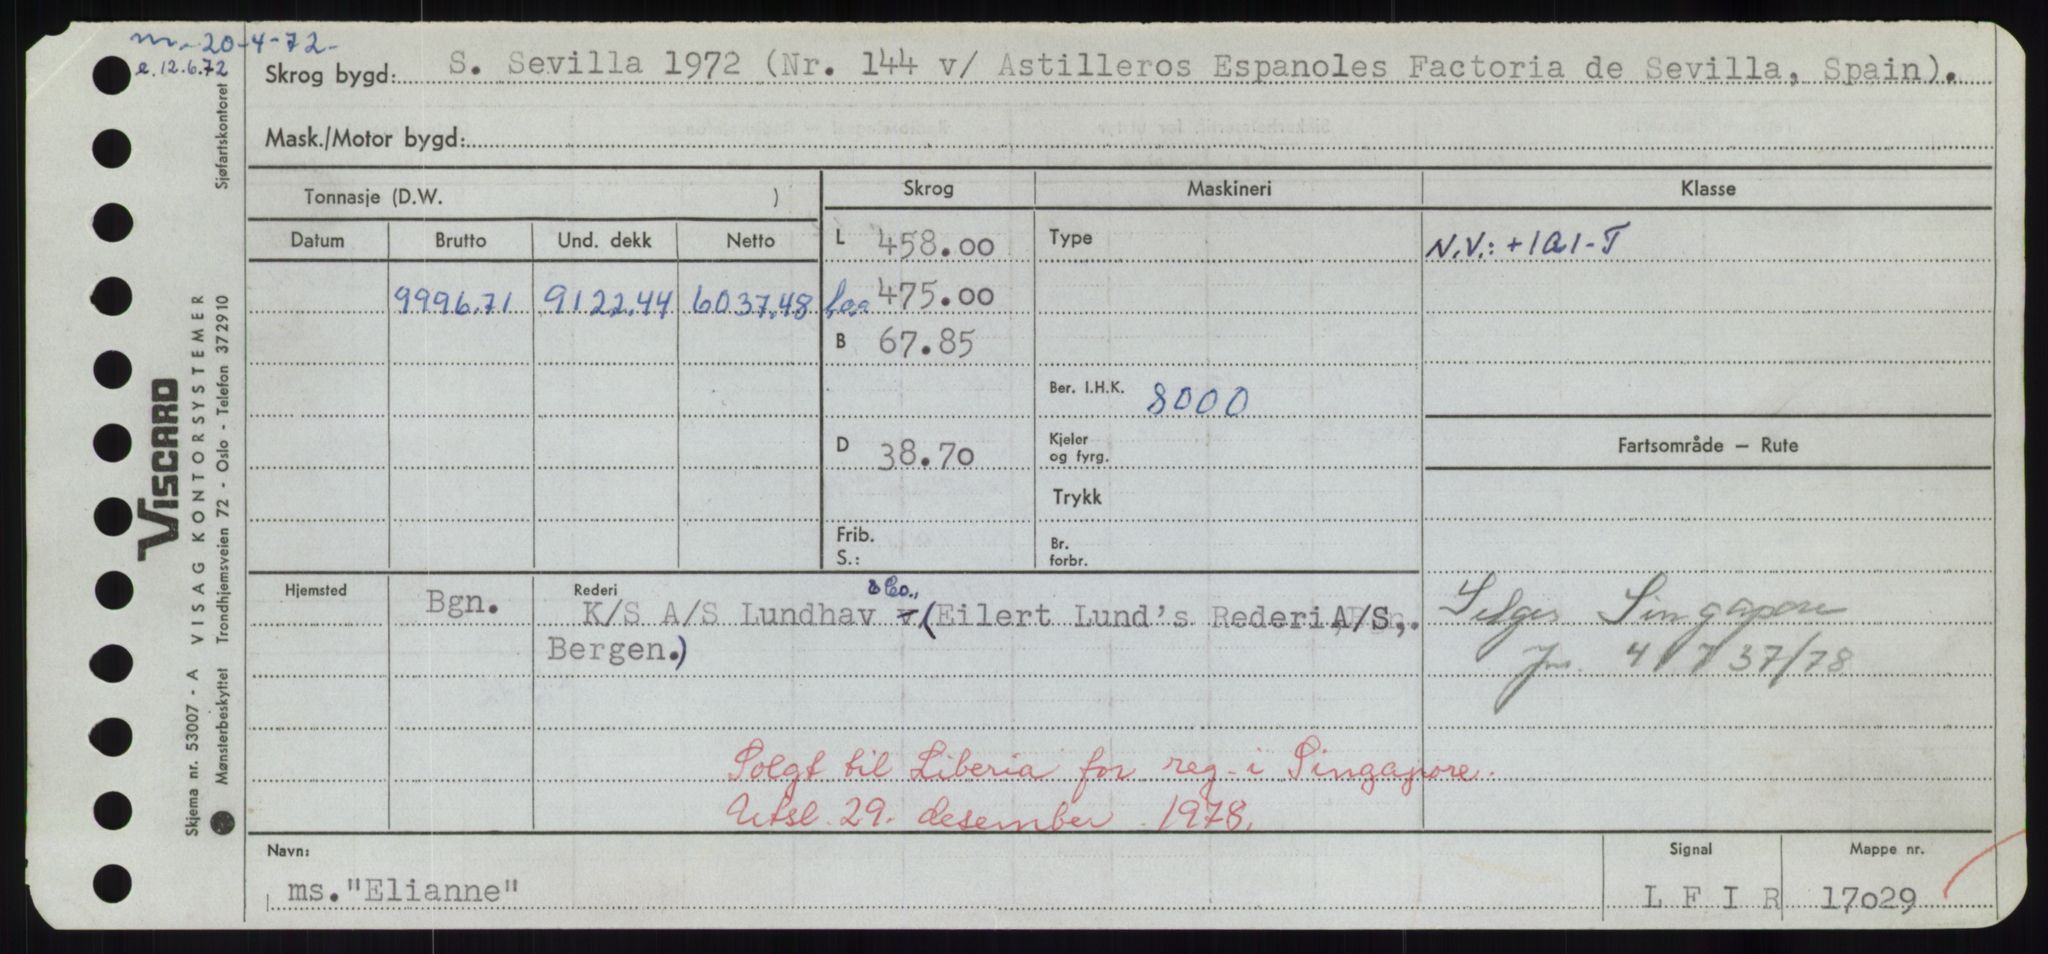 m. 20-4-72-
e. 12.6.72
Skrog bygd: S. Sevilla 1972 (Nr. 144 v/ Astilleros Espanoles Factoria de Sevilla, Spain).
Mask./Motor bygd:
Tonnasje (D.W. ) Skrog Maskineri Klasse
Datum Brutto Und. dekk Netto L 458.00 Type N.V.: +1A1-T
9996.71 9122.44 6037.48 475.00
B 67.85
Ber. I.H.K. 8000
D 38.70 Kjeler og fyrg. Fartsområde — Rute
Trykk
Frib. S.: Br. forbr.
Hjemsted Bgn. Rederi
& Co.,
K/S A/S Lundhav (Eilert Lund's Rederi A/S,
Bergen.)
Selges Singapore
Jnr. 41737/78
Solgt til Liberia for reg. i Singapore.
Utsl. 29. desember 1978.
Navn: ms."Elianne" Signal L F I R Mappe nr. 17029
VISCARD
Skjema nr. 53007 - A VISAG KONTORSYSTEMER
Mønsterbeskyttet Trondhjemsveien 72 - Oslo - Telefon 372910 Sjøfartskontoret